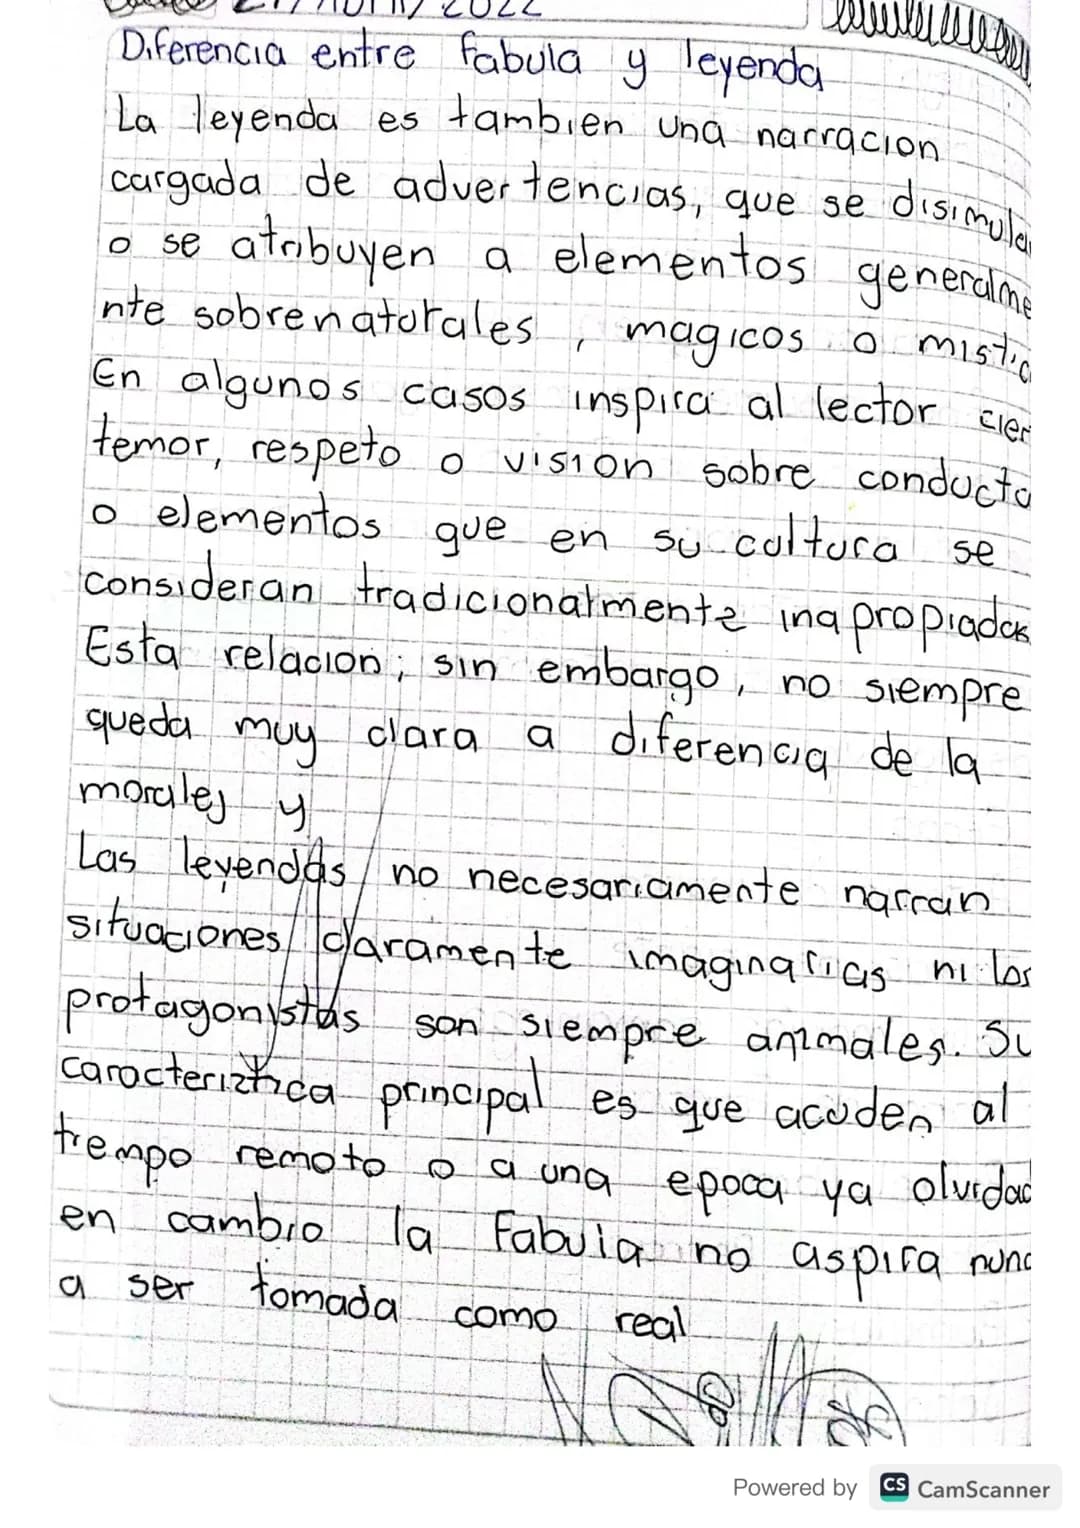 2022
Diferencia entre fabula y leyenda
La leyenda es tambien una narracion
cargada de advertencias, que se disimula
o se atribuyen a elementos generalme
nte sobrenaturales, magicos o mistic
En algunos casos inspira al lector cier
temor, respeto o vision sobre conducta
o elementos que en su cultura se
consideran tradicionalmente inapropiados
Esta relacion; sin embargo, no siempre
queda muy clara a diferencia de la
morales y
Las leyendas no necesariamente narran
situaciones claramente imaginarias ni los
protagonistas son siempre animales. Su
caracteriztica principal es que acuden al
tiempo remoto o a una epoca ya olvidad
en cambio la Fabula no aspira nunc
a ser tomada como real
Powered by CS CamScanner